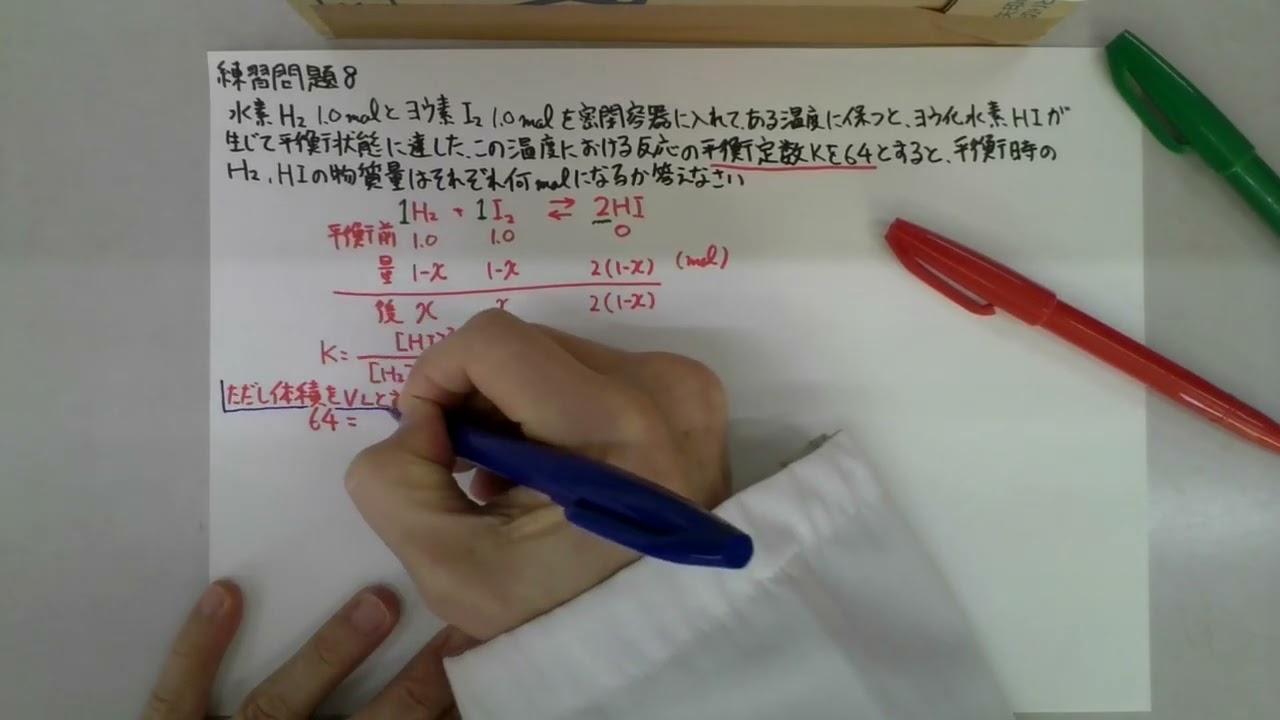 練習問題8
水素 H₂ 1.0molとヨウ素 I₂ 1.0molを密閉容器に入れて、ある温度に保つと、ヨウ化水素HIが
生じて平衡状態に達した、この温度における反応の平衡定数Kを64とすると、平衡時の
H₂、HIの物質量はそれぞれ何molになるか答えなさい
1H₂ + 1I₂ ⇄ 2HI
平衡前 1.0 1.0 0
量 1-x 1-x 2(1-x) (mol)
後 x x 2(1-x)
K= [HI]²
[H₂]
ただし体積をVLと
64 =